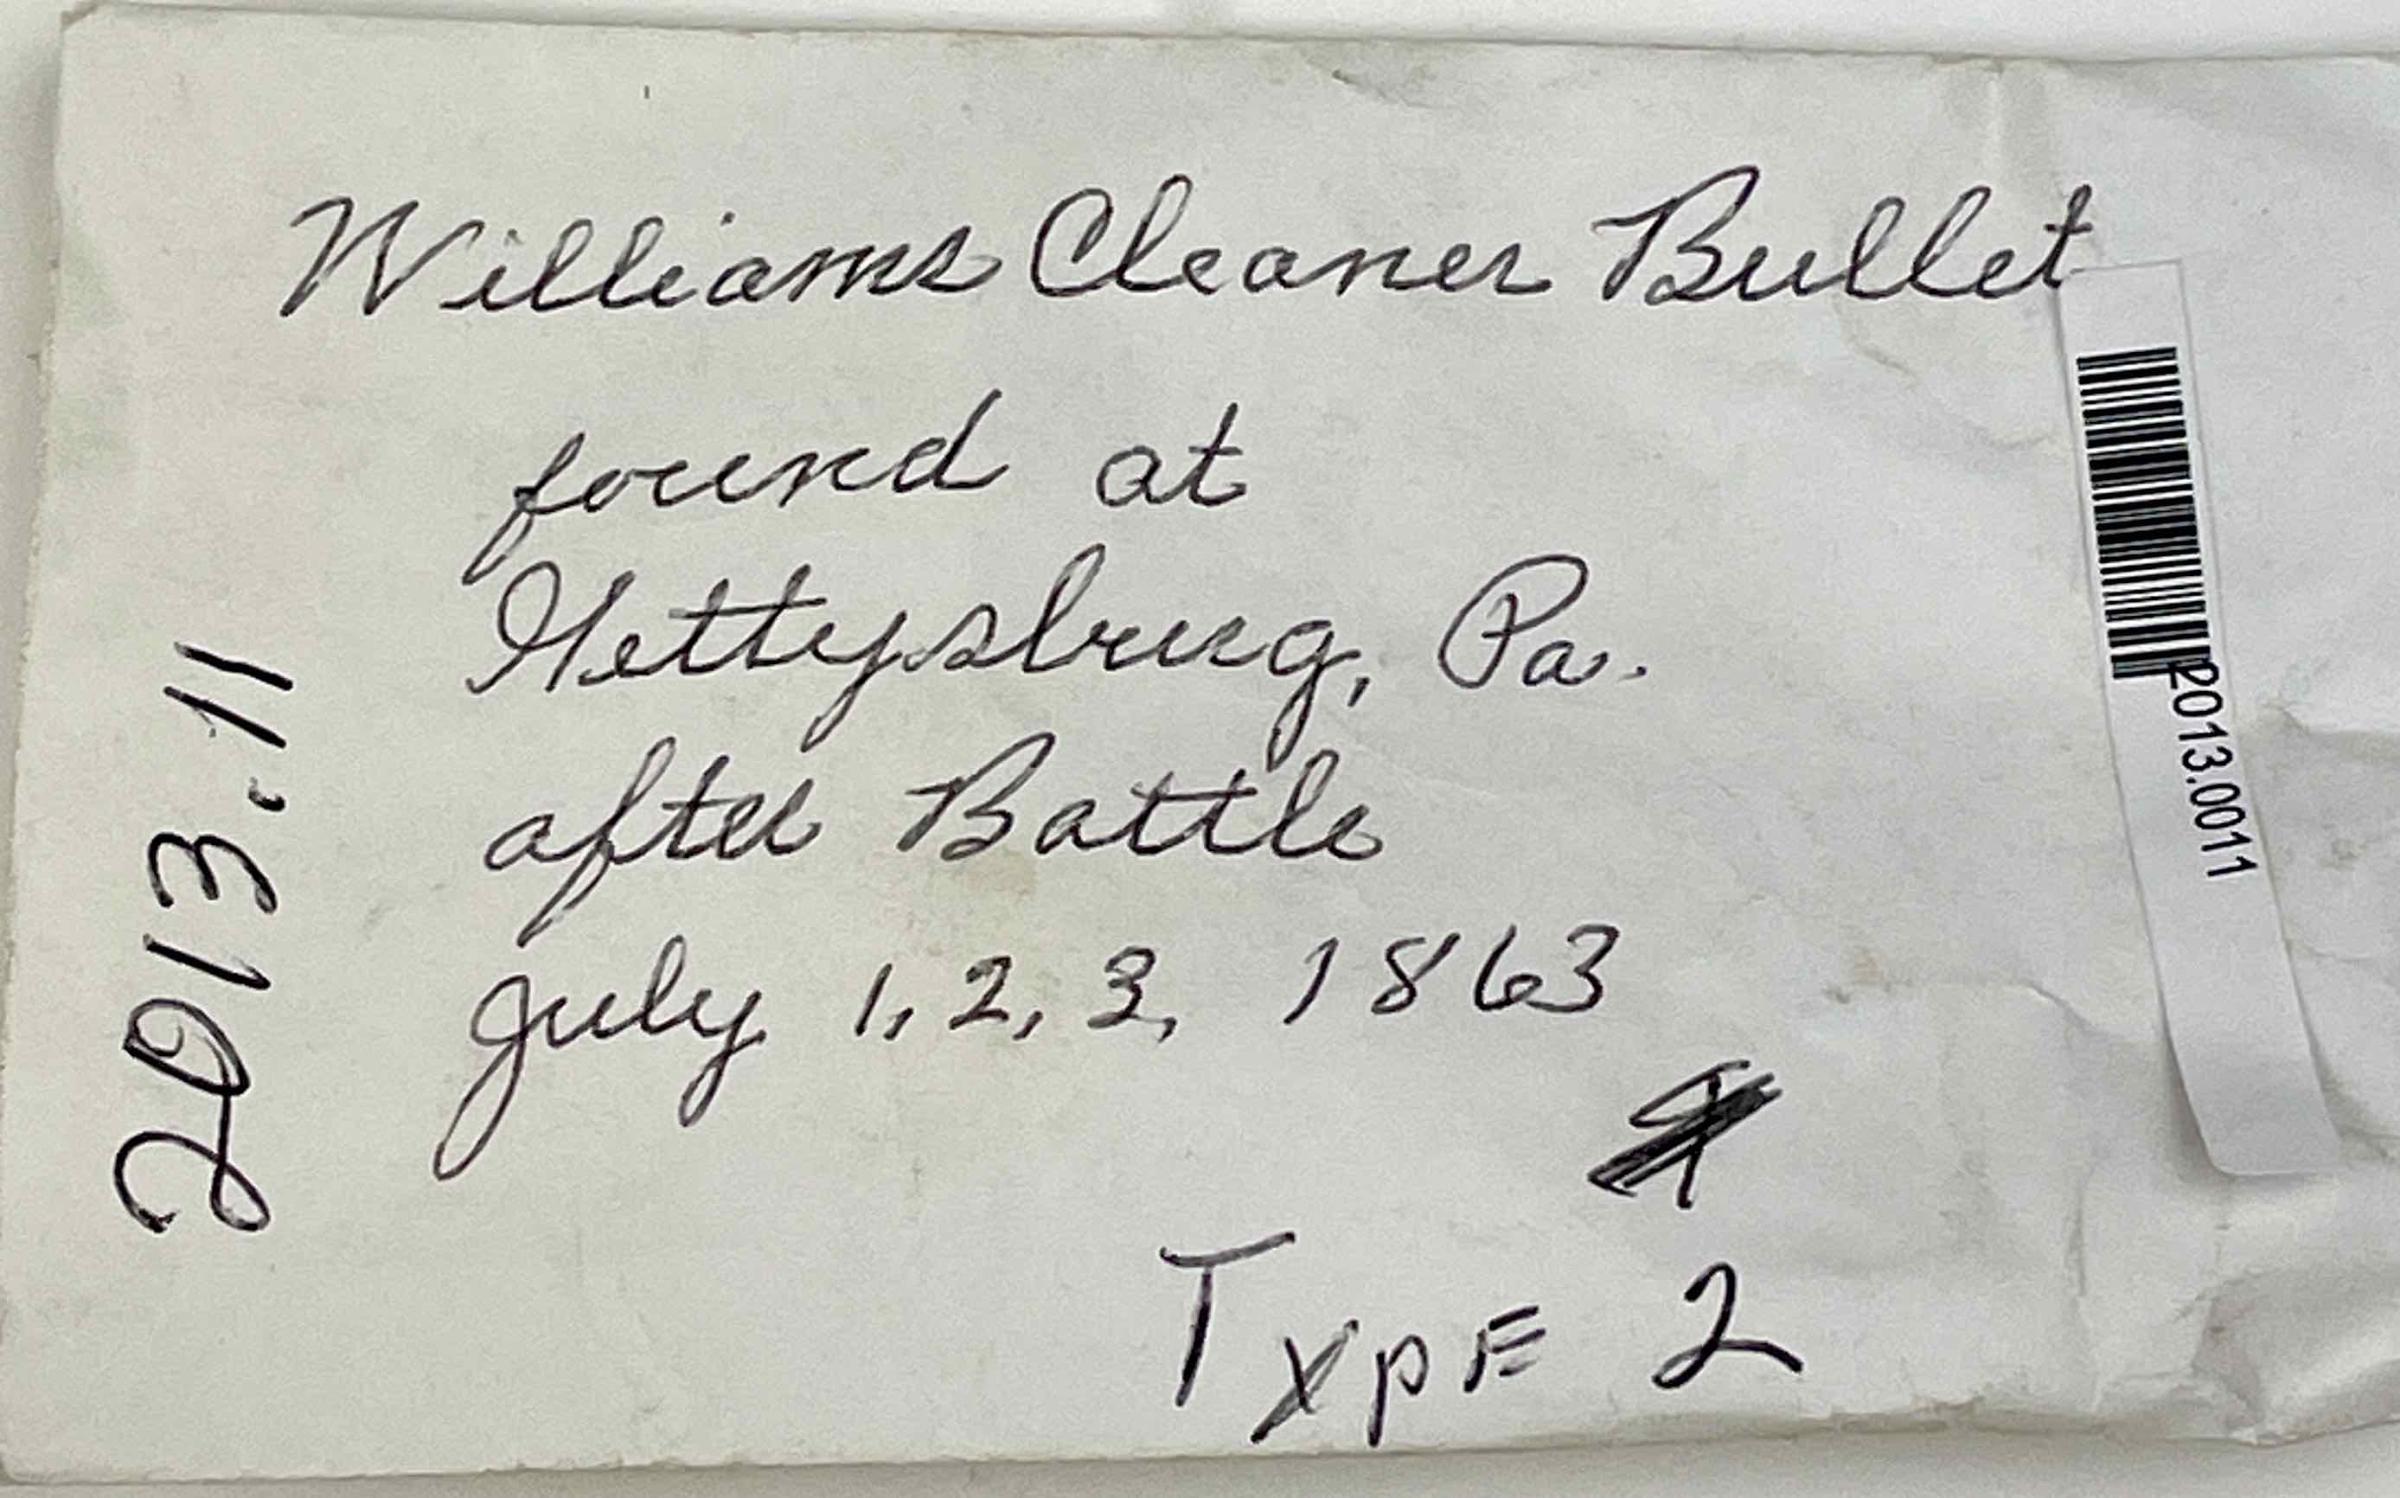 Williams Cleaner Bullet
found at
Gettysburg, Pa.
after Battle
July 1, 2, 3, 1863
TYPE 2
2013.11
2013.0011